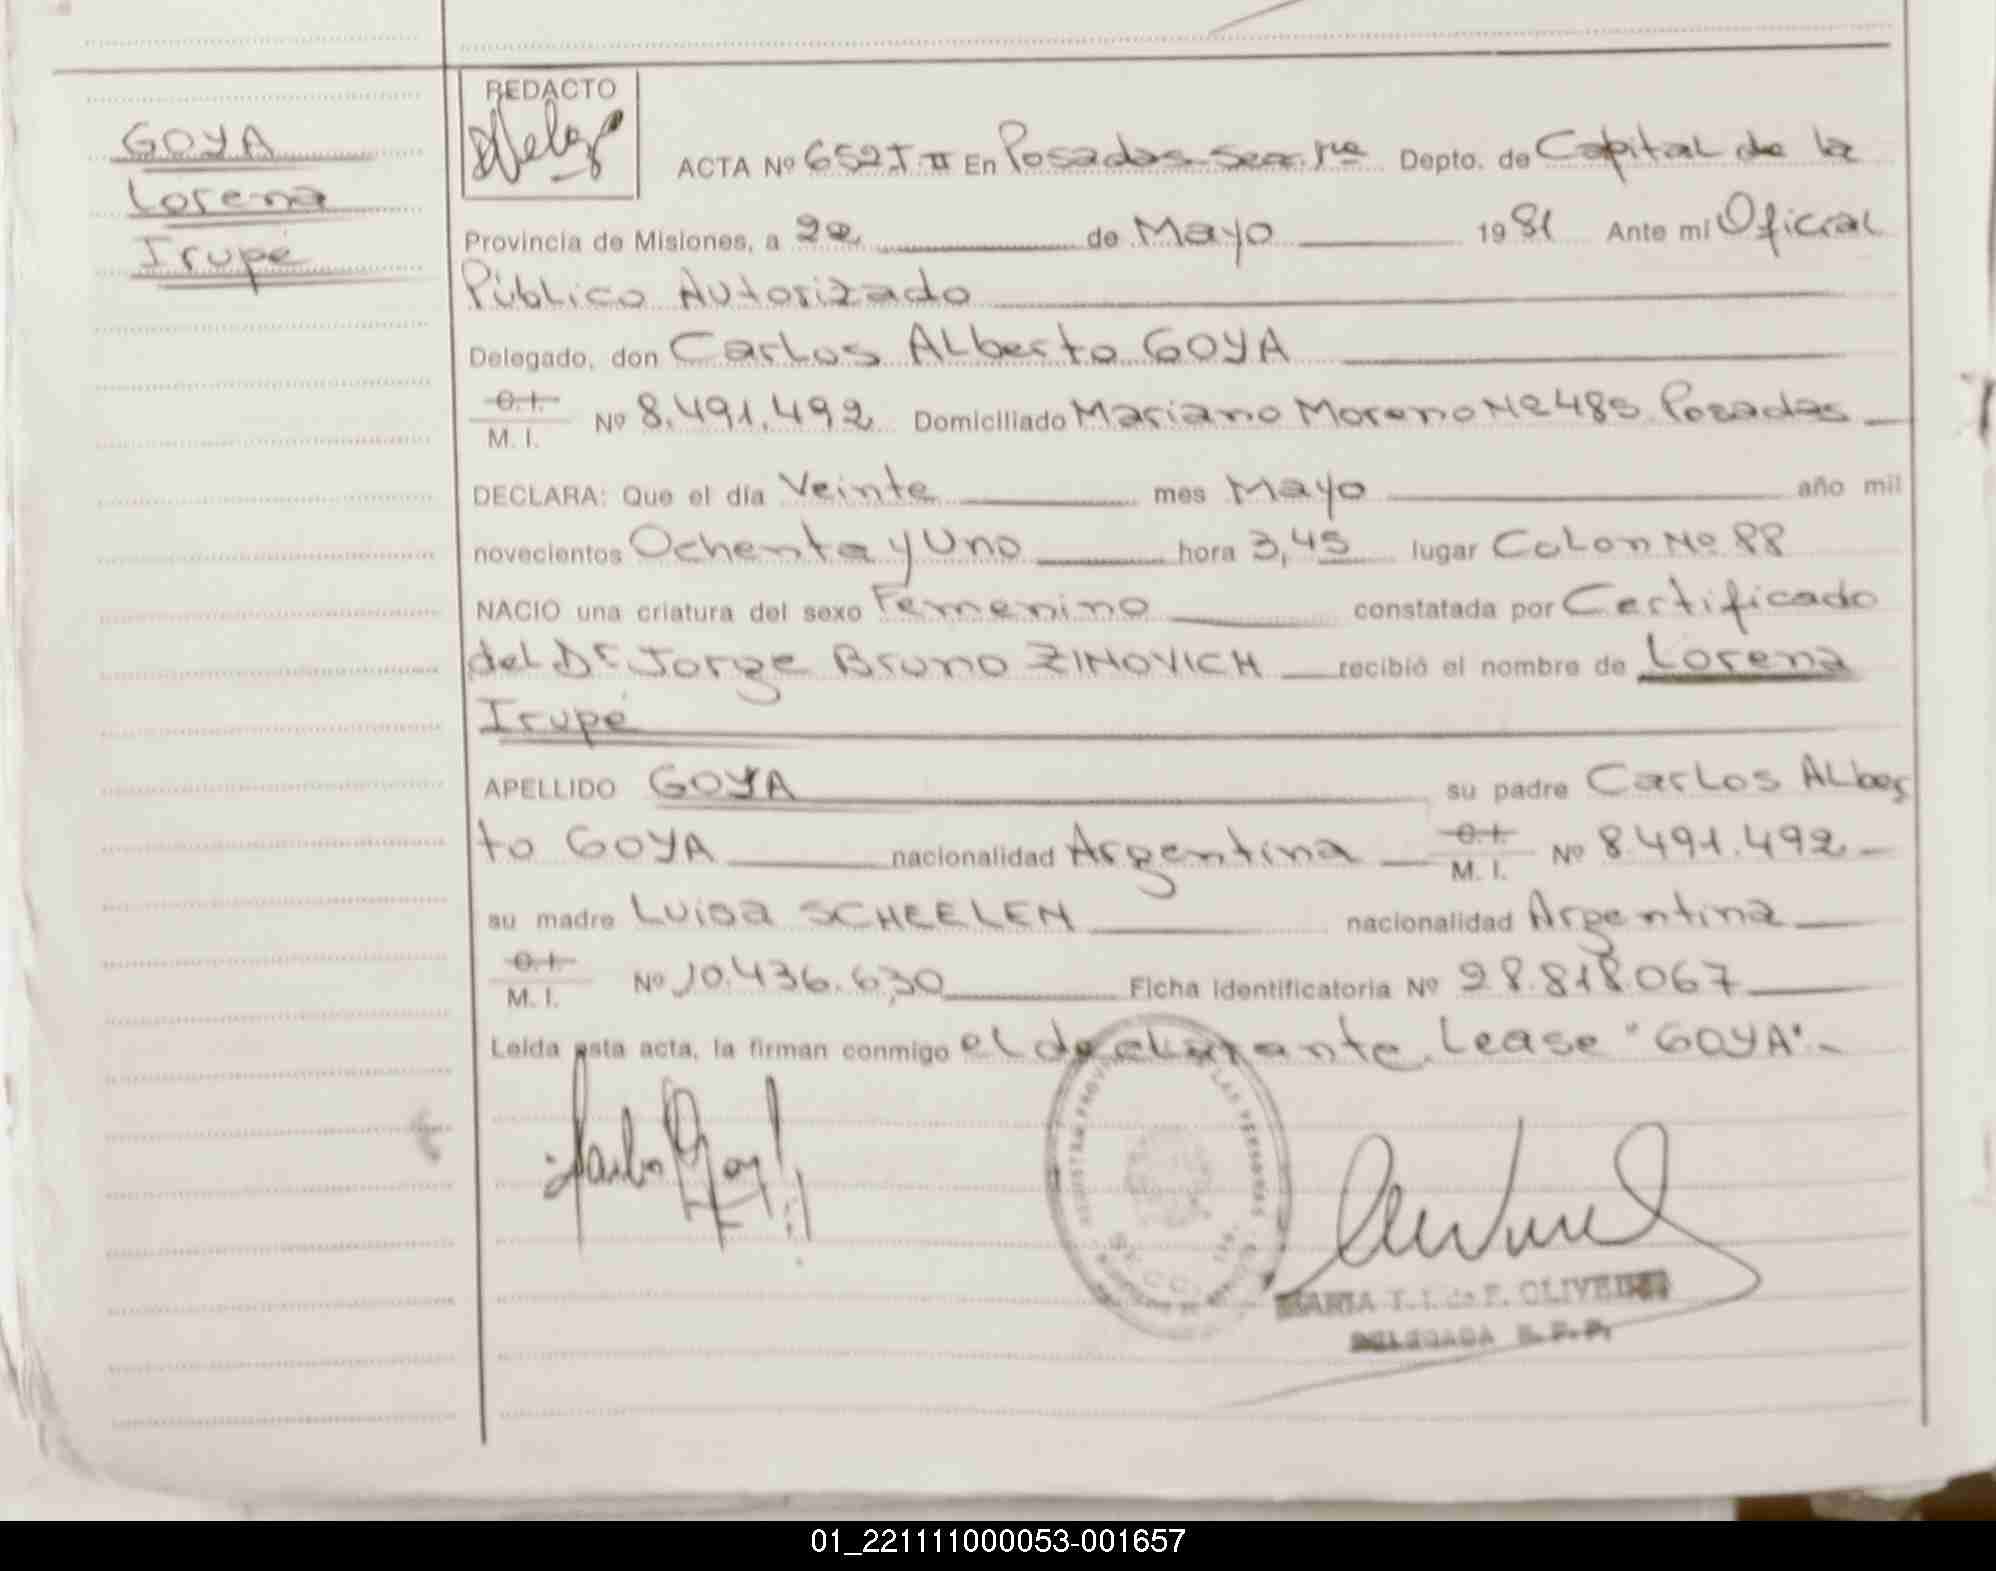 GOYA
Lorena
Irupé
REDACTO
ACTA Nº 652 T II En Posadas Secc. 1ra Depto. de Capital de la
Provincia de Misiones, a 22 de Mayo 1981 Ante mi Oficial
Público Autorizado
Delegado, don Carlos ALberto GOYA
C.I.
M. I. Nº 8.491.492 Domiciliado Mariano Moreno Nº 485 Posadas
DECLARA: Que el día Veinte mes Mayo año mil
novecientos Ochenta y Uno hora 3,45 lugar Colon Nº 88
NACIO una criatura del sexo Femenino constatada por Certificado
del Dr. Jorge Bruno ZINOVICH recibió el nombre de Lorena
Irupé
APELLIDO GOYA su padre Carlos ALber
to GOYA nacionalidad Argentina C.I. M. I. Nº 8.491.492
su madre Luisa SCHEELEN nacionalidad Argentina
C.I.
M. I. Nº 10.436.630 Ficha identificatoria Nº 28.818.067
Leída esta acta, la firman conmigo el declarante. Lease "GOYA".-
MARIA T. I. de F. OLIVEIRA
DELEGADA R. P. P.
01_221111000053-001657